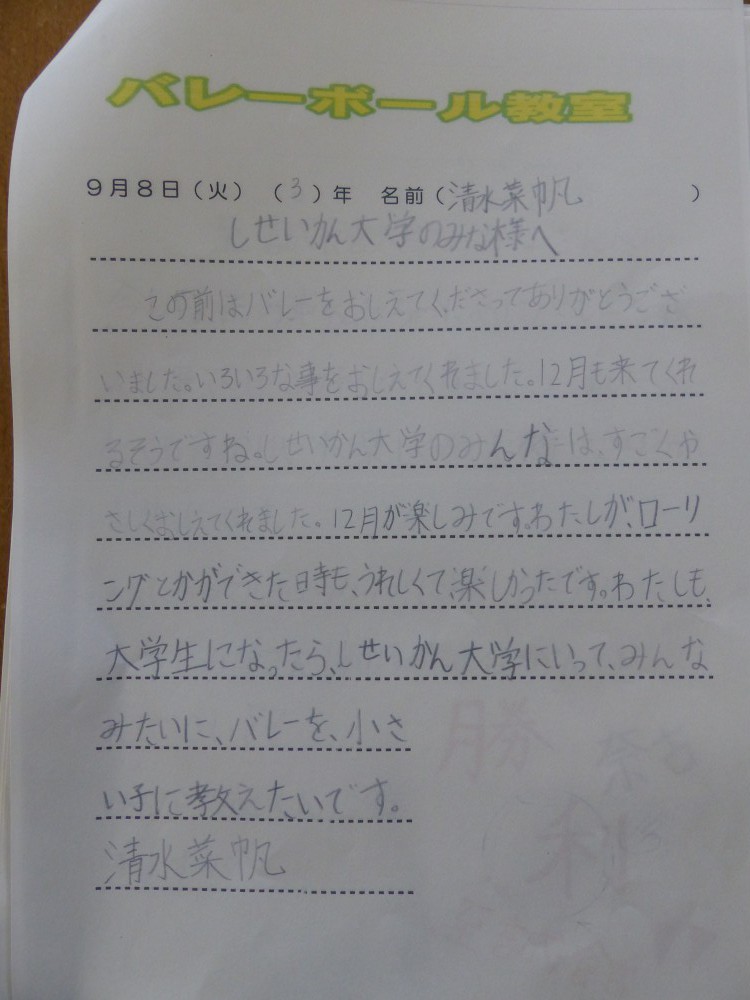 バレーボール教室
9月8日(火) (3)年 名前(清水菜帆)
しせいかん大学のみな様へ
この前はバレーをおしえてくださってありがとうござ
いました。いろいろな事をおしえてくれました。12月も来てくれ
るそうですね。しせいかん大学のみんなは、すごくや
さしくおしえてくれました。12月が楽しみです。わたしが、ローリ
ングとかができた時も、うれしくて、楽しかったです。わたしも、
大学生になったら、しせいかん大学にいって、みんな
みたいに、バレーを、小さ
い子に教えたいです。
清水菜帆
勝
利